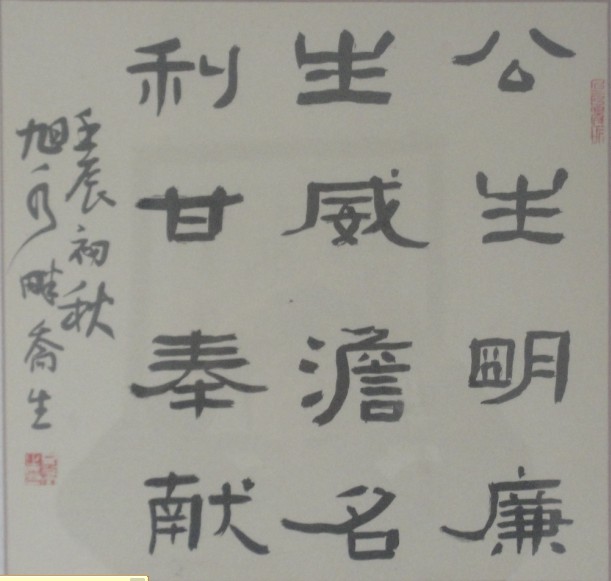 公生明廉
生威澹名
利甘奉献
壬辰初秋
旭水畔喬生